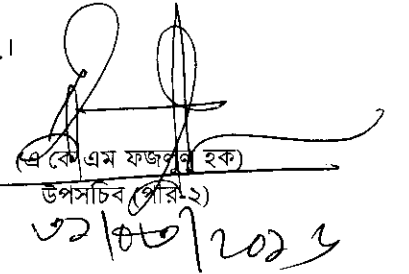 (এ কে এম ফজলুল হক)
উপসচিব (পরি-২)
৩১/০৩/২০১৬